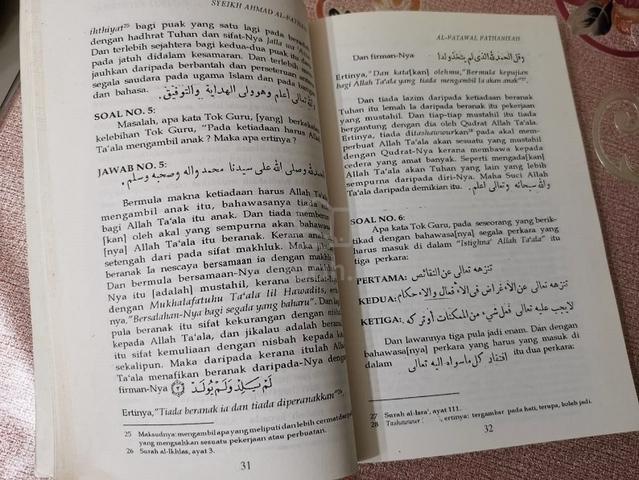 SYEIKH AHMAD AL-FATHANI
ikhtiyat²⁵ bagi puak yang satu lagi pada beradab
dengan hadhrat Tuhan dan sifat-Nya Jalla wa
Dan terlebih sejahtera bagi kedua-dua puak itu
pada jatuh didalam kesamaran. Dan terlebih
jauhkan daripada berbantah dan perseteruan antara
segala saudara pada ugama Islam dan pada bangsa
dan bahasa. والله تعالى أعلم وهو ولي الهداية والتوفيق.
SOAL NO. 5:
Masalah, apa kata Tok Guru, [yang] berkekalan
kelebihan Tok Guru, "Pada ketiadaan harus Allah
Ta'ala mengambil anak ? Maka apa ertinya ?
JAWAB NO. 5:
الحمد لله وصلى الله على سيدنا محمد وآله وصحبه وسلم.
Bermula makna ketiadaan harus Allah Ta'ala
mengambil anak itu, bahawasanya tiada
bagi Allah Ta'ala itu anak. Dan tiada
[kan] oleh akal yang sempurna akan bahawasa
[nya] Allah Ta'ala itu beranak. Kerana anak
setengah dari pada sifat makhluk. Maka jika
beranak Ia nescaya bersamaan ia dengan makhluk
Dan bermula bersamaan-Nya dengan makhluk-
Nya itu [adalah] mustahil, kerana bersifat
dengan Mukhalafatuhu Ta'ala lil Hawadits, erti-
nya,"Bersalahan-Nya bagi segala yang baharu". Dan lagi
pula beranak itu sifat kekurangan dengan nisbah
kepada Allah Ta'ala, dan jikalau adalah beranak
itu sifat kemuliaan dengan nisbah kepada
sekalipun. Maka daripada kerana itulah Allah
Ta'ala menafikan beranak daripada-Nya dengan
firman-Nya لَمْ يَلِدْ وَلَمْ يُولَدْ ﴿٣﴾
Ertinya,"Tiada beranak ia dan tiada diperanakkan"²⁶,
25 Maksudnya: mengambil apa yang meliputi dan lebih cermat daripada
yang mengsahkan sesuatu pekerjaan atau perbuatan.
26 Surah al-Ikhlas, ayat 3.
31
AL-FATAWAL FATHANIYAH
Dan firman-Nya وقل الحمد لله الذى لم يتخذ ولدا
Ertinya,"Dan kata[kan] olehmu,"Bermula kepujian
bagi Allah Ta'ala yang tiada mengambil Ia akan anak"²⁷.
Dan tiada lazim daripada ketiadaan beranak
Tuhan itu lemah Ia daripada beranak itu pekerjaan
yang mustahil. Dan tiap-tiap mustahil itu tiada
bergantung dengan dia oleh Qudrat Allah Ta'ala.
Ertinya, tiada ditashawwurkan²⁸ pada akal mem-
perbuat oleh Allah Ta'ala akan yang mustahil itu
dengan Qudrat-Nya kerana membawa kepada
cedera yang amat banyak. Seperti mengada[kan]
Allah Ta'ala akan Tuhan yang lain yang lebih
sempurna daripada diri-Nya. Maha Suci Allah
Ta'ala daripada demikian itu. والله سبحانه وتعالى اعلم.
SOAL NO. 6:
Apa kata Tok Guru, pada seseorang yang berik-
tikad dengan bahawasa[nya] segala perkara yang
harus masuk di dalam "Istighna' Allah Ta'ala" itu
enam perkara:
PERTAMA: تنزهه تعالى عن النقائص
KEDUA: تنزهه تعالى عن الأغراض في الافعال والاحكام
KETIGA: لايجب عليه تعالى فعل شيء من الممكنات أو تركه
Dan lawannya tiga pula jadi enam. Dan dengan
bahawasa[nya] perkara yang harus yang masuk di
dalam افتقار كل ماسواه اليه تعالى itu dua perkara:
27 Surah al-Isra', ayat 111.
28 Tashawwur : , ertinya: tergambar pada hati, terupa, boleh jadi.
32